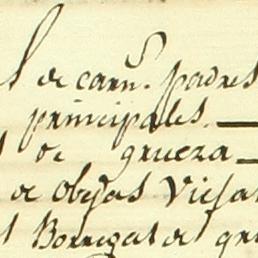 de carn.s padres
principales.
de grueza
de obejas Viejas
Borregas de gru